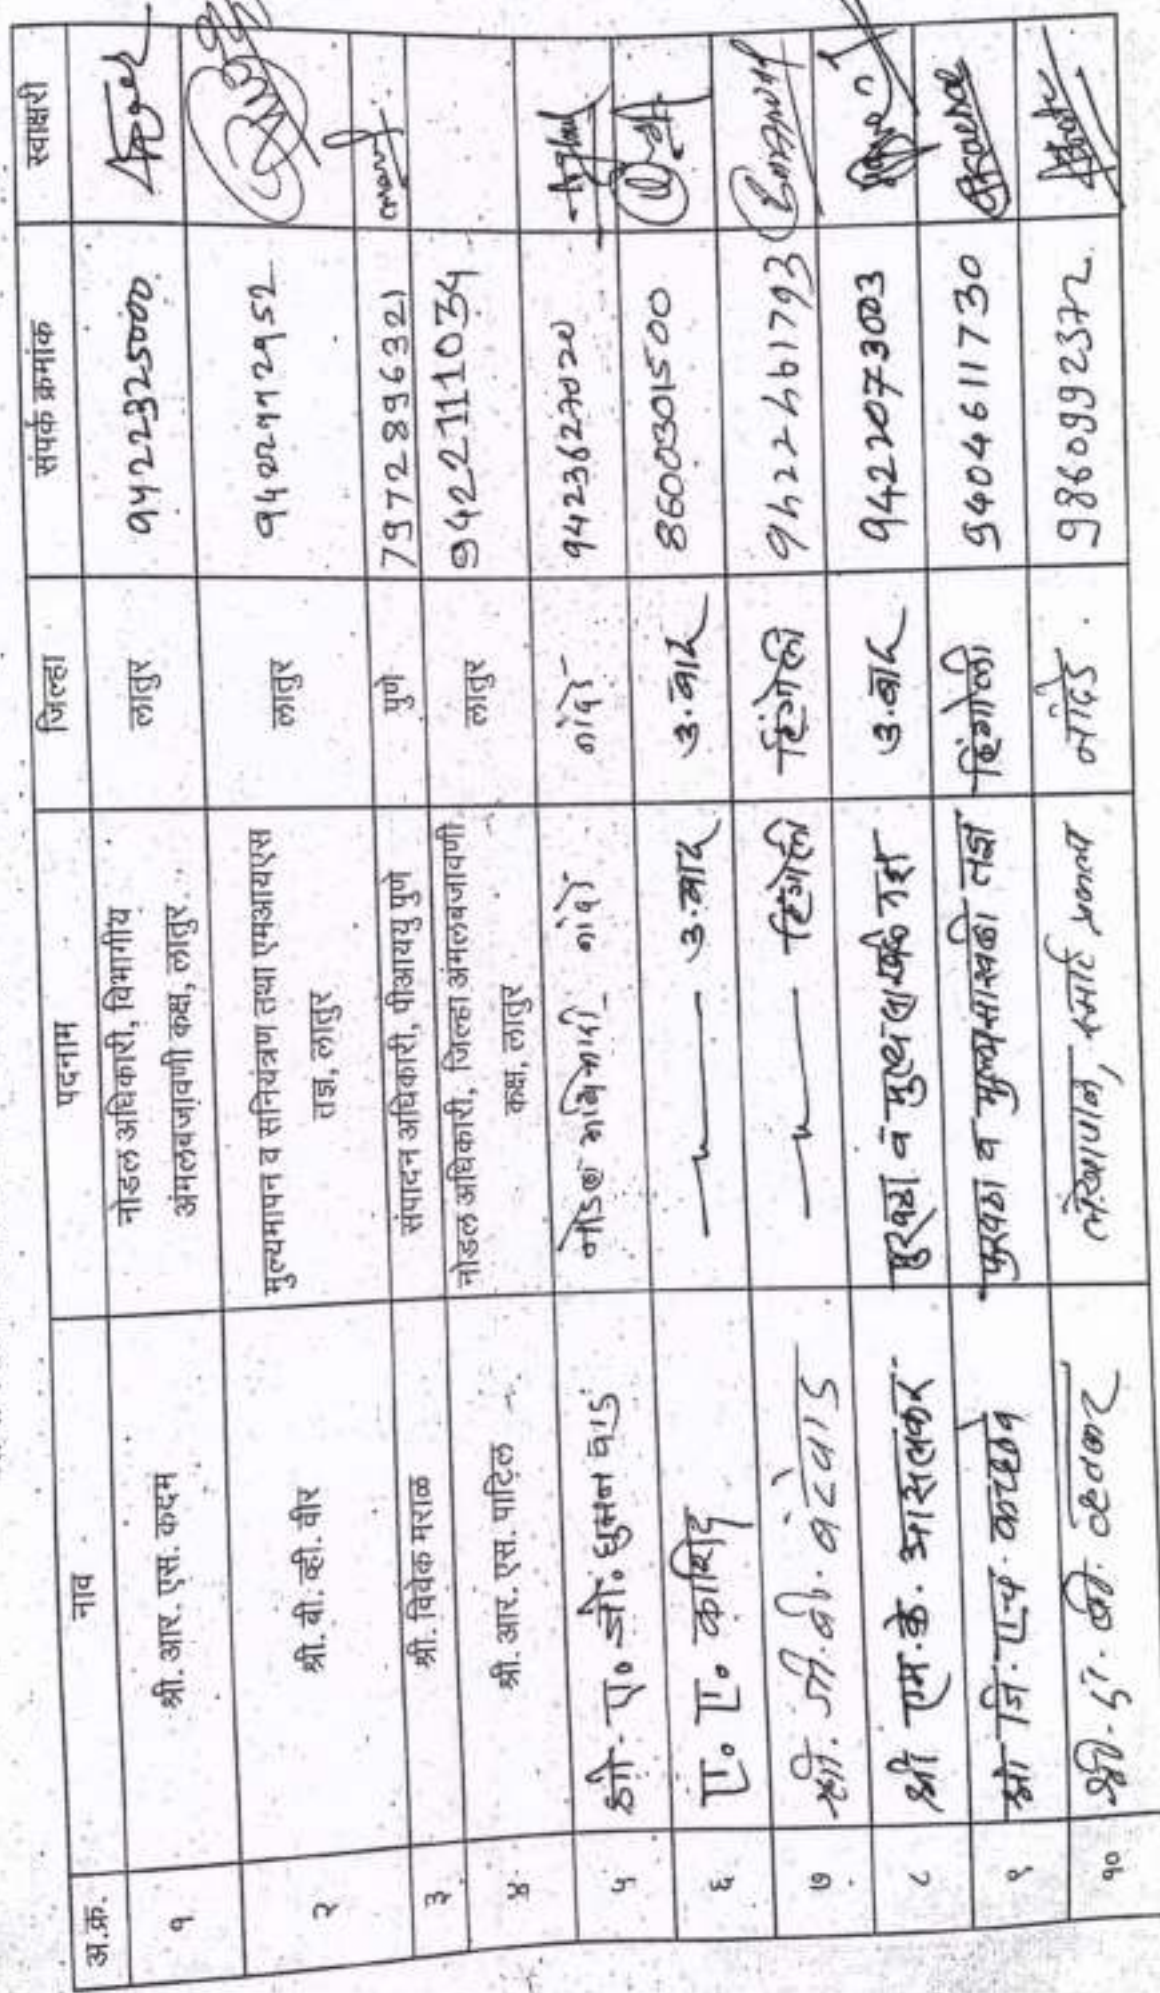 अ.क्र. नाव पदनाम जिल्हा संपर्क क्रमांक स्वाक्षरी
१ श्री. आर. एस. कदम नोडल अधिकारी, विभागीय लातुर 9422325000
अंमलबजावणी कक्ष, लातुर.
२ श्री. बी. व्ही. वीर मुल्यमापन व सनियंत्रण तथा एमआयएस लातुर
तज्ञ, लातुर
३ श्री. विवेक मराळ संपादन अधिकारी, पीआययु पुणे पुणे 7972896321
४ श्री. आर. एस. पाटिल नोडल अधिकारी, जिल्हा अंमलबजावणी लातुर 9422111034
कक्ष, लातुर
५ श्री. ए. जी. घुमनवाड नोडल अधिकारी नांदेड नांदेड 9423627020
६ ए. ए. काशिद —〃— उ.बाद उ.बाद 8600301500
७ श्री. जी. बी. बंटेवाड —〃— हिंगोली हिंगोली
८ श्री एम. के. आसलकर पुरवठा व मुल्य साखळी तज्ञ उ.बाद 9422073003
९ श्री जि. एच. कच्छवे पुरवठा व मुल्यसाखळी तज्ञ हिंगोली 9404611730
१० श्री. डी. बी. लेखापाल, स्मार्ट प्रकल्प नांदेड. 9860992372